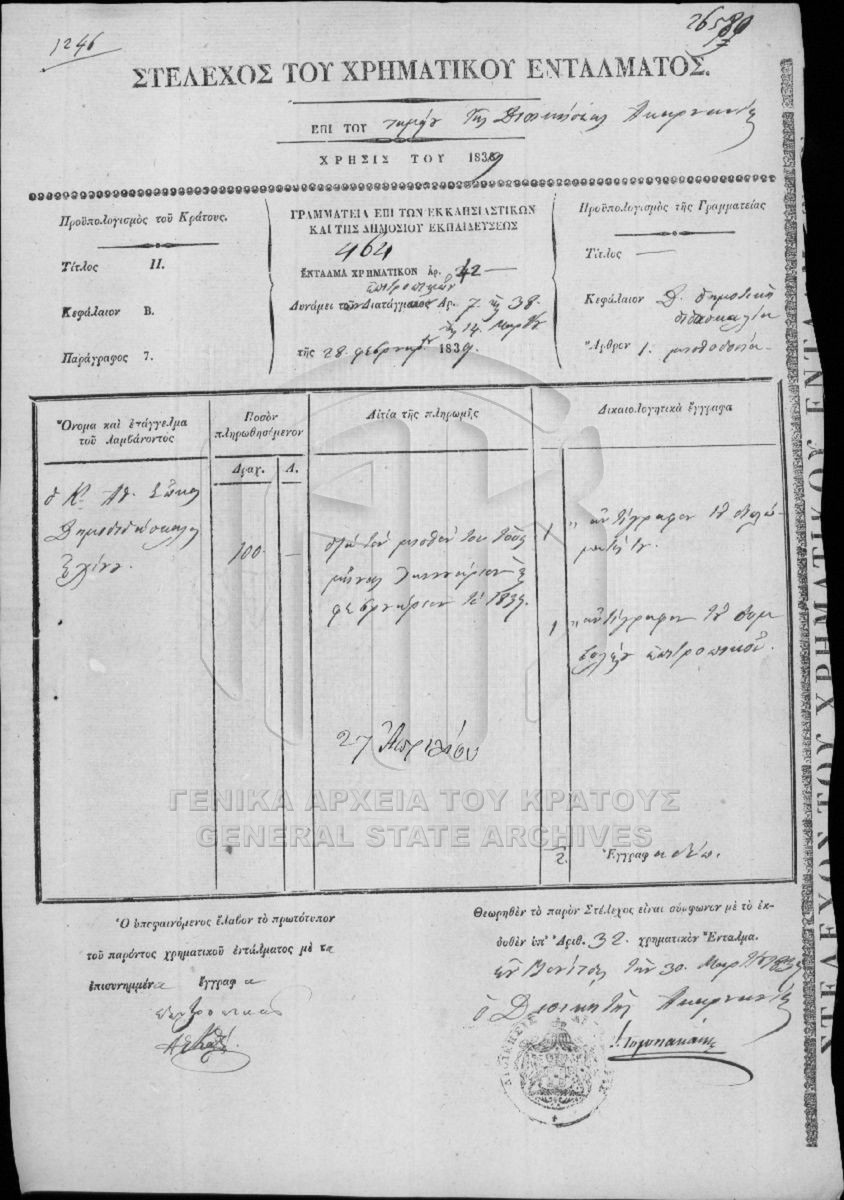 1246
ΣΤΕΛΕΧΟΣ ΤΟΥ ΧΡΗΜΑΤΙΚΟΥ ΕΝΤΑΛΜΑΤΟΣ.
ΕΠΙ ΤΟΥ ταμίου της Διοικήσεως Ακαρνανίας
ΧΡΗΣΙΣ ΤΟΥ 1839
Προϋπολογισμὸς τοῦ Κράτους.
Τίτλος II.
Κεφάλαιον Β.
Παράγραφος 7.
ΓΡΑΜΜΑΤΕΙΑ ΕΠΙ ΤΩΝ ΕΚΚΛΗΣΙΑΣΤΙΚΩΝ
ΚΑΙ ΤΗΣ ΔΗΜΟΣΙΟΥ ΕΚΠΑΙΔΕΥΣΕΩΣ
464
ΕΝΤΑΛΜΑ ΧΡΗΜΑΤΙΚΟΝ ἀρ.
Δυνάμει τῶν Διατάγματος Ἀρ. 7. 38.
14 Μαρτίου
τῆς 28 φεβρουαρ 1839.
Προϋπολογισμὸς τῆς Γραμματείας
Τίτλος —
Κεφάλαιον Δ. δημοτικὴ
διδασκαλία
Ἄρθρον 1. μισθοδοσία
Ὄνομα καὶ ἐπάγγελμα
τοῦ λαμβάνοντος
Ποσὸν
πληρωθησόμενον
Δραχ. Λ.
Αἰτία τῆς πληρωμῆς
Δικαιολογητικὰ ἔγγραφα
ὁ Κ. Αθ.
Δημοδιδάσκαλος
100 —
διὰ τὸν μισθόν του τοὺς
μῆνας Ιαννουάριον &
φεβρουάριον τοῦ 1839.
1 " ἀντίγραφον τοῦ διπλώ
ματός του.
1 " ἀντίγραφον τοῦ συμ
βολαίου ἐπιτροπικοῦ.
27 Ἀπριλίου
2. Ἔγγραφα δύο.
Ὁ ὑπεφαινόμενος ἔλαβον τὸ πρωτότυπον
τοῦ παρόντος χρηματικοῦ ἐντάλματος μὲ τα
ἐπισυνημμένα ἔγγραφα
Θεωρηθὲν τὸ παρὸν Στέλεχος εἶναι σύμφωνον μὲ τὸ ἐκ-
δοθὲν ὑπ' Ἀριθ. 32. χρηματικὸν Ἔνταλμα.
ἐν Βονίτσῃ τὴν 30 Μαρτίου 1839
ὁ Διοικητὴς Ακαρνανίας
ΓΕΝΙΚΑ ΑΡΧΕΙΑ ΤΟΥ ΚΡΑΤΟΥΣ
GENERAL STATE ARCHIVES
ΣΤΕΛΕΧΟΣ ΤΟΥ ΧΡΗΜΑΤΙΚΟΥ ΕΝΤΑΛ